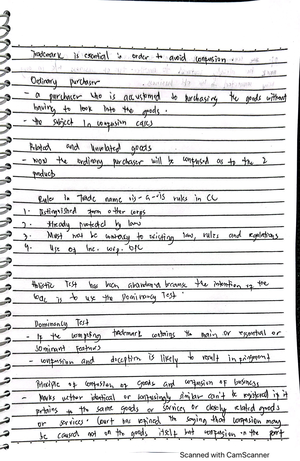 Trademark is essential in order to avoid confusion.
Ordinary purchaser
- a purchaser who is accustomed to purchasing the goods without
having to look into the goods.
- the subject in confusion cases
Related and Unrelated goods
- now the ordinary purchaser will be confused as to the 2
products
Rules in Trade name vis-a-vis rules in CC
1. Distinguished from other corps
2. Already protected by law
3. Must not be contrary to existing law, rules and regulations
4. Use of Inc. corp. OPC
Holistic Test has been abandoned because the intention of the
is to use the Dominancy Test.
Dominancy Test
- If the competing trademark contains the main or essential or
dominant features
- confusion and deception is likely to result in
Principle of confusion of goods and confusion of business
- Marks wether identical or confusingly similar can't be registered if it
pertains to the same goods or services or closely related goods
or services. Court has the saying that confusion may
be caused not on the goods itself but confusion on the part
Scanned with CamScanner